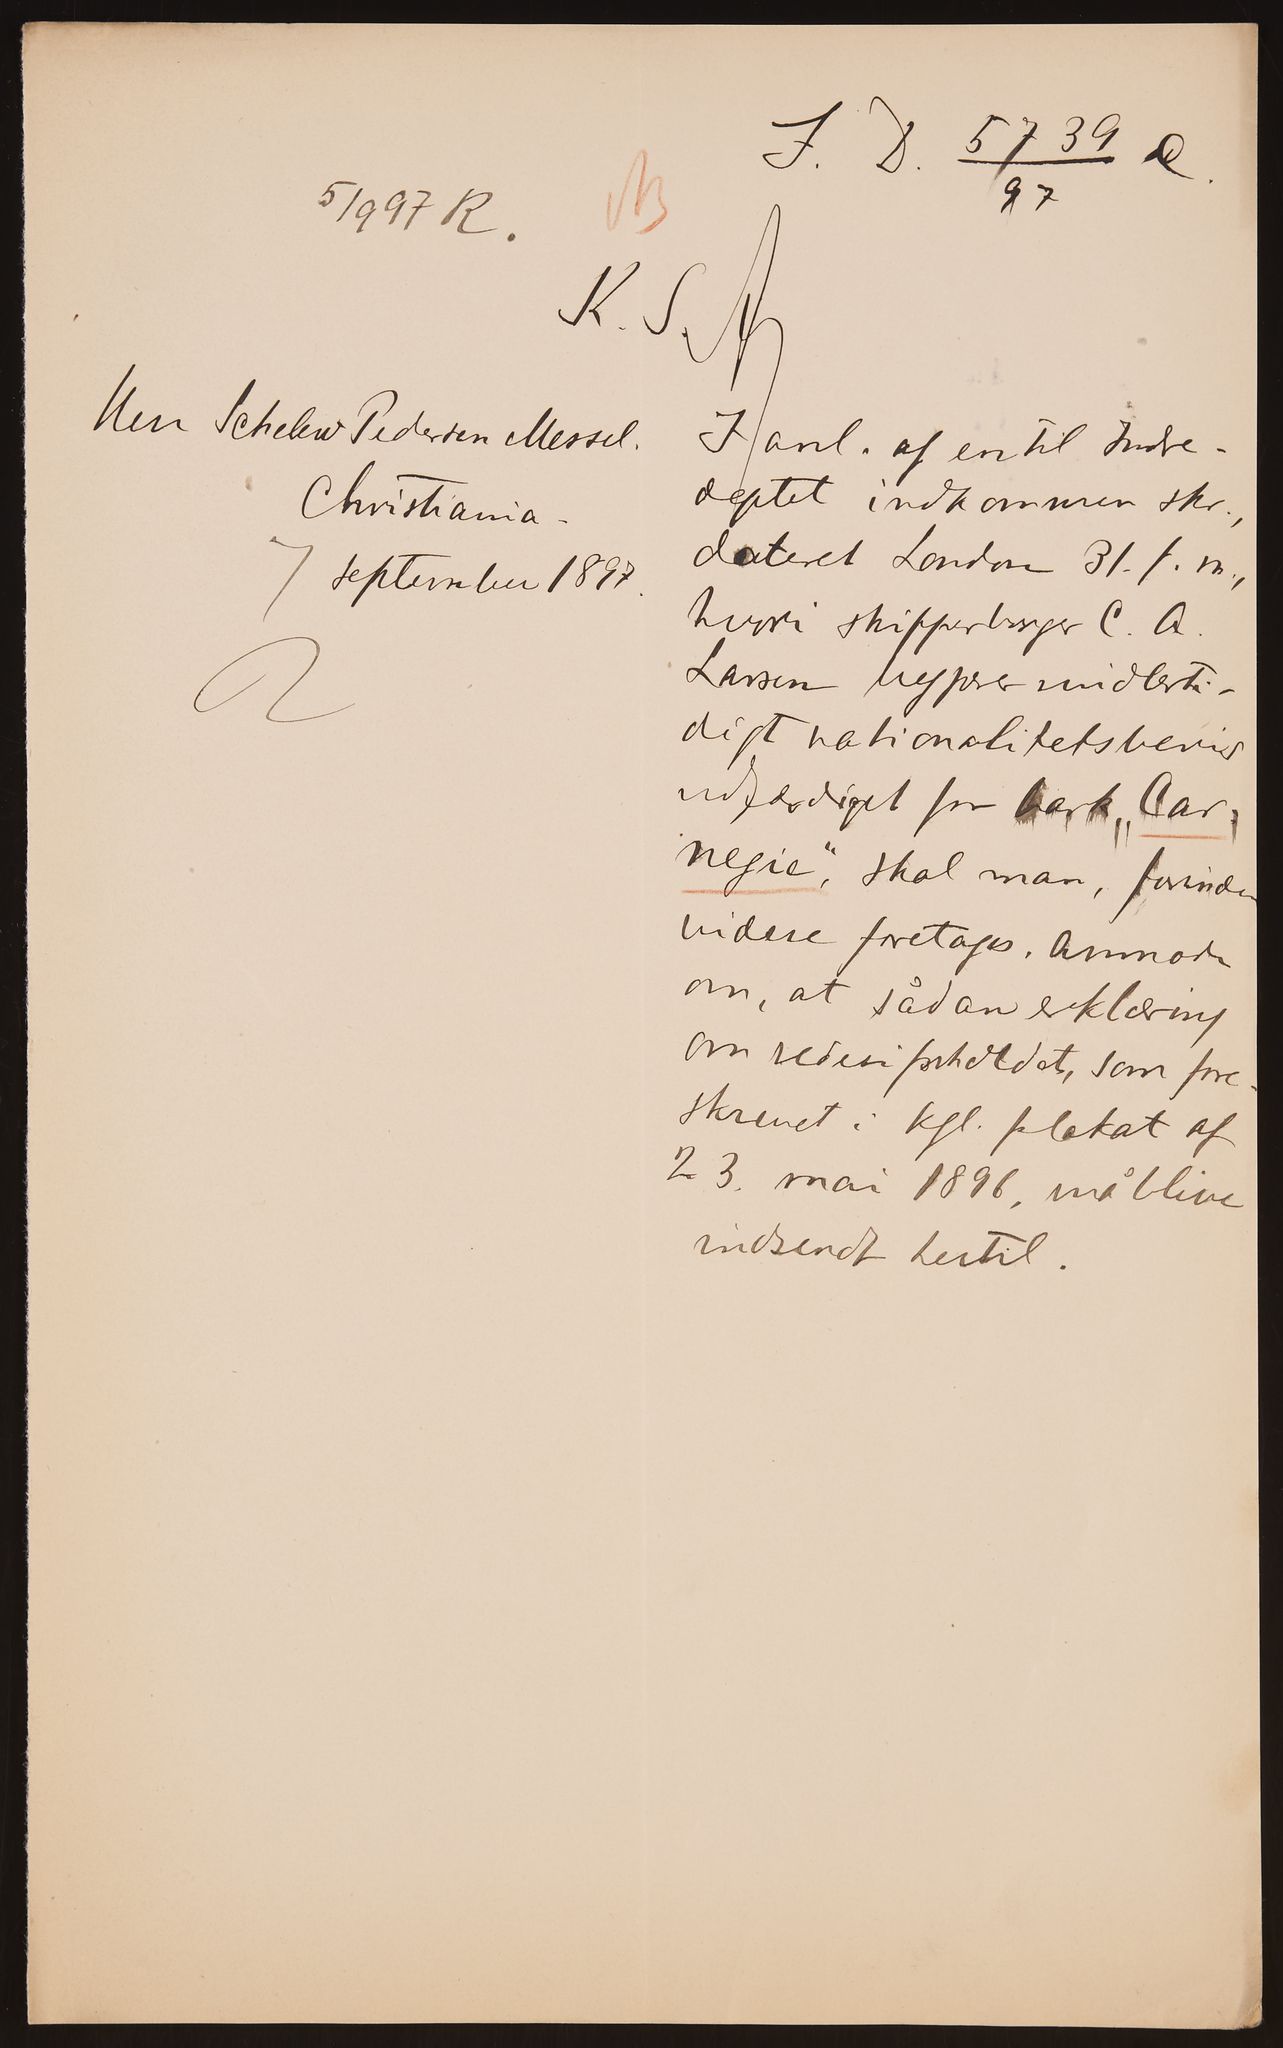 J. D. 5739/97 A.
5/9 97 R.
K. S.
Herr Schelew Pedersen Messel.
Christiania.
7 september 1897.
I anl. af en til Indre-
deptet indkommen skr.,
dateret London 31. f. m.,
hvori skipperborger C. A.
Larsen begjærer midlerti-
digt nationalitetsbevis
udfærdiget for bark „Car-
negie“, skal man, forinden
videre foretages, anmode
om, at sådan erklæring
om rederiforholdet, som fore-
skrevet i kgl. plakat af
23. mai 1896, må blive
indsendt hertil.